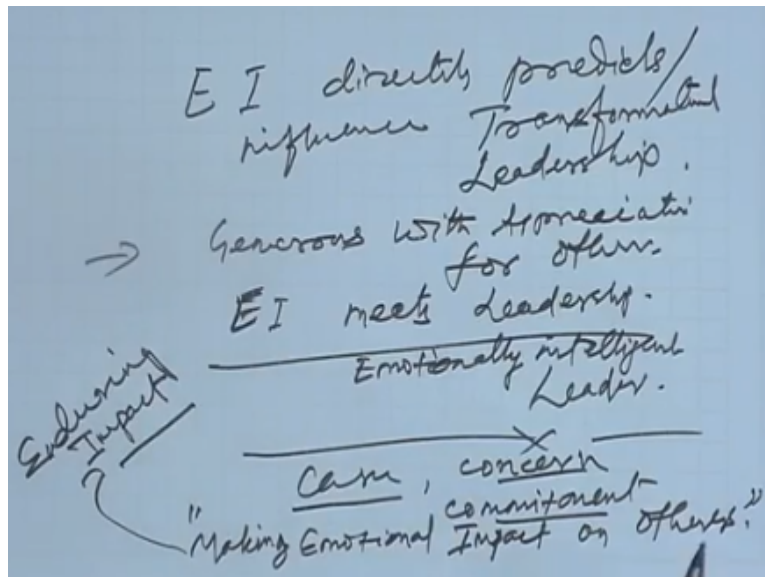 EI directly predicts/
influence Transformational
Leadership.
→ Generous with Appreciation
for others.
EI meets Leadership.
Emotionally intelligent
Leader.
Enduring
Impact
Care, concern
commitment
"Making Emotional Impact on Others."